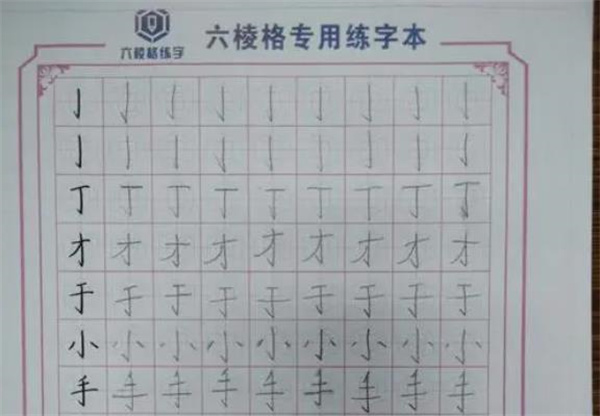 六棱格练字
六棱格专用练字本
亅 亅 亅 亅 亅 亅 亅 亅 亅
亅 亅 亅 亅 亅 亅 亅 亅 亅
丁 丁 丁 丁 丁 丁 丁 丁 丁
才 才 才 才 才 才 才 才 才
于 于 于 于 于 于 于 于 于
小 小 小 小 小 小 小 小 小
手 手 手 手 手 手 手 手 手